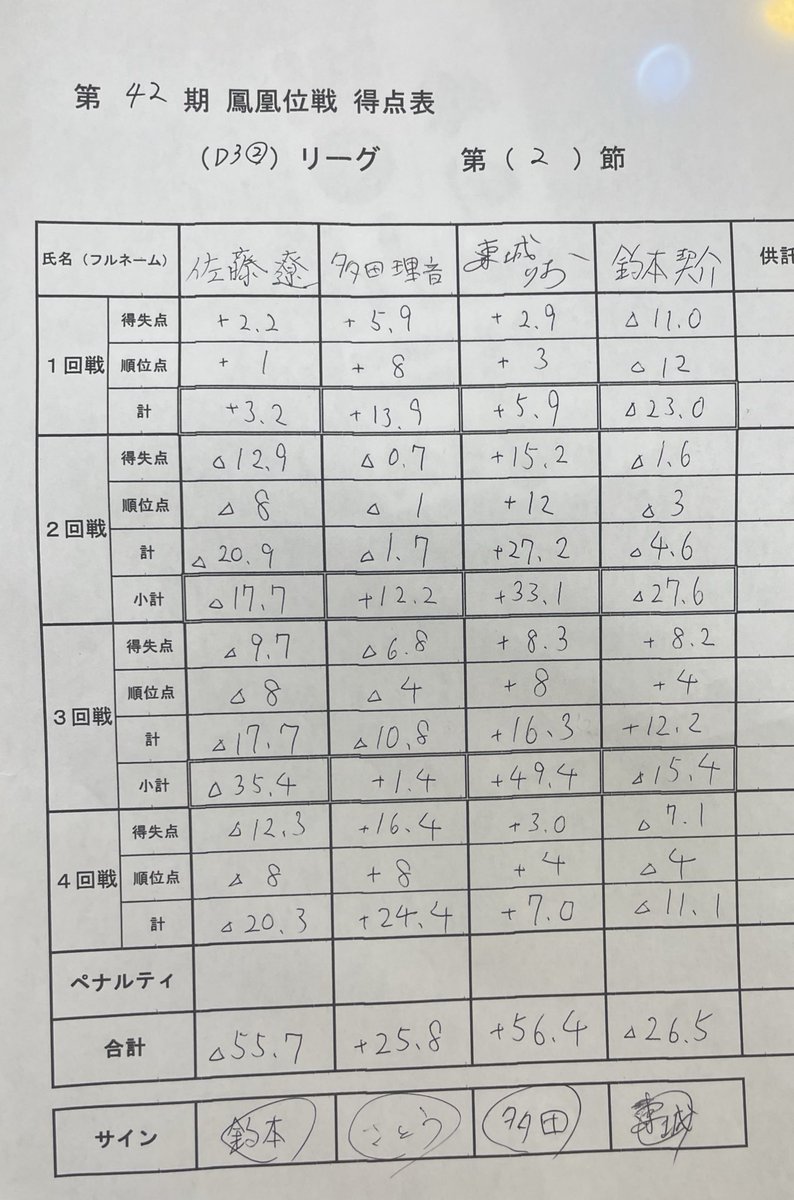 第 42 期 鳳凰位戦 得点表
(D3②) リーグ 第 ( 2 ) 節
氏名 (フルネーム) 佐藤 遼 多田 理音 東城 りお 鈞本 契介 供託
1回戦
得失点 +2.2 +5.9 +2.9 △11.0
順位点 +1 +8 +3 △12
計 +3.2 +13.9 +5.9 △23.0
2回戦
得失点 △12.9 △0.7 +15.2 △1.6
順位点 △8 △1 +12 △3
計 △20.9 △1.7 +27.2 △4.6
小計 △17.7 +12.2 +33.1 △27.6
3回戦
得失点 △9.7 △6.8 +8.3 +8.2
順位点 △8 △4 +8 +4
計 △17.7 △10.8 +16.3 +12.2
小計 △35.4 +1.4 +49.4 △15.4
4回戦
得失点 △12.3 +16.4 +3.0 △7.1
順位点 △8 +8 +4 △4
計 △20.3 +24.4 +7.0 △11.1
ペナルティ
合計 △55.7 +25.8 +56.4 △26.5
サイン 鈞本 さとう 多田 東城